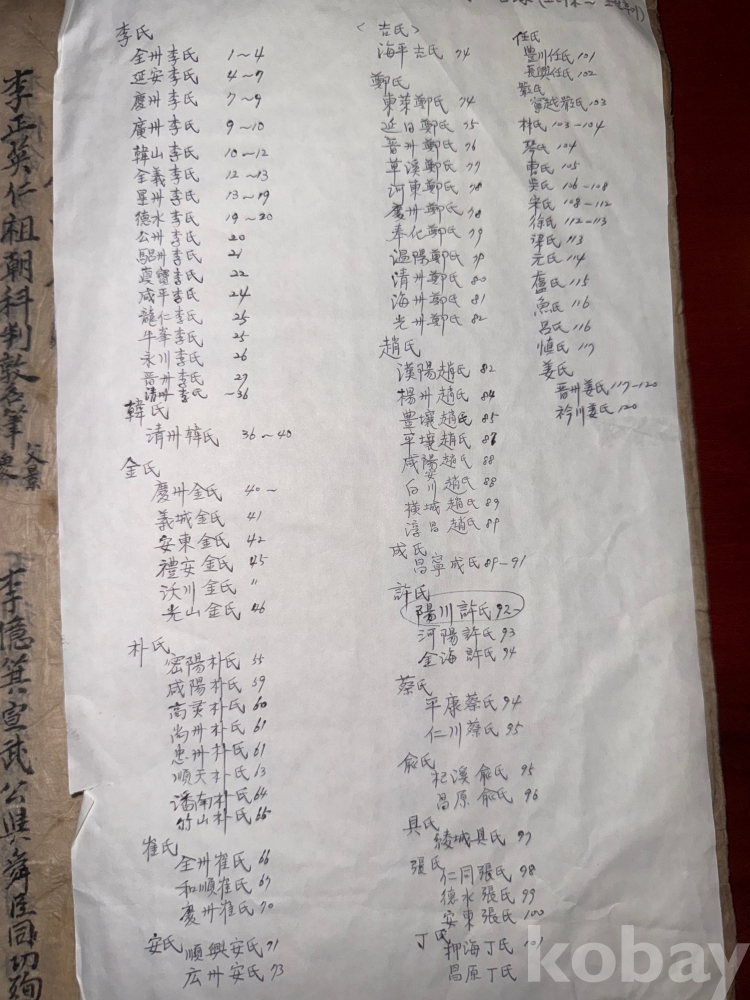 李氏
全州李氏 1~4
延安李氏 4~7
慶州李氏 7~9
廣州李氏 9~10
韓山李氏 10~12
全義李氏 12~13
星州李氏 13~19
德水李氏 19~20
公州李氏 20
驪州李氏 21
眞寶李氏 22
咸平李氏 24
龍仁李氏 25
牛峯李氏 25
永川李氏 26
晋州李氏 27
清州李氏 ~36
韓氏
清州韓氏 36~40
金氏
慶州金氏 40~
義城金氏 41
安東金氏 42
禮安金氏 45
沃川金氏 〃
光山金氏 46
朴氏
密陽朴氏 55
咸陽朴氏 59
高灵朴氏 60
尚州朴氏 61
忠州朴氏 61
順天朴氏 63
潘南朴氏 64
竹山朴氏 66
崔氏
全州崔氏 66
和順崔氏 67
慶州崔氏 70
安氏
順興安氏 71
広州安氏 73
〈吉氏〉
海平吉氏 74
鄭氏
東萊鄭氏 74
延日鄭氏 75
晋州鄭氏 76
草溪鄭氏 77
河東鄭氏 78
慶州鄭氏 78
奉化鄭氏 79
温陽鄭氏 79
清州鄭氏 80
海州鄭氏 81
光州鄭氏 82
趙氏
漢陽趙氏 82
楊州趙氏 84
豊壤趙氏 85
平壤趙氏 86
咸安趙氏 88
白川趙氏 88
橫城趙氏 89
淳昌趙氏 89
成氏
昌寧成氏 89-91
許氏
陽川許氏 92
河陽許氏 93
金海許氏 94
蔡氏
平康蔡氏 94
仁川蔡氏 95
兪氏
杞溪兪氏 95
昌原兪氏 96
具氏
綾城具氏 97
張氏
仁同張氏 98
德水張氏 99
安東張氏 100
丁氏
押海丁氏 101
昌原丁氏
任氏
豊川任氏 101
長興任氏 102
嚴氏
寧越嚴氏 103
朴氏 103-104
琴氏 104
曺氏 105
吳氏 106-108
宋氏 108-112
徐氏 112-113
梁氏 113
元氏 114
盧氏 115
魚氏 116
呂氏 116
慎氏 117
姜氏
晋州姜氏 117-120
衿川姜氏 120
李正英仁祖朝科判敦名筆
父景
李億箕宣武公與舜臣同功殉
kobay